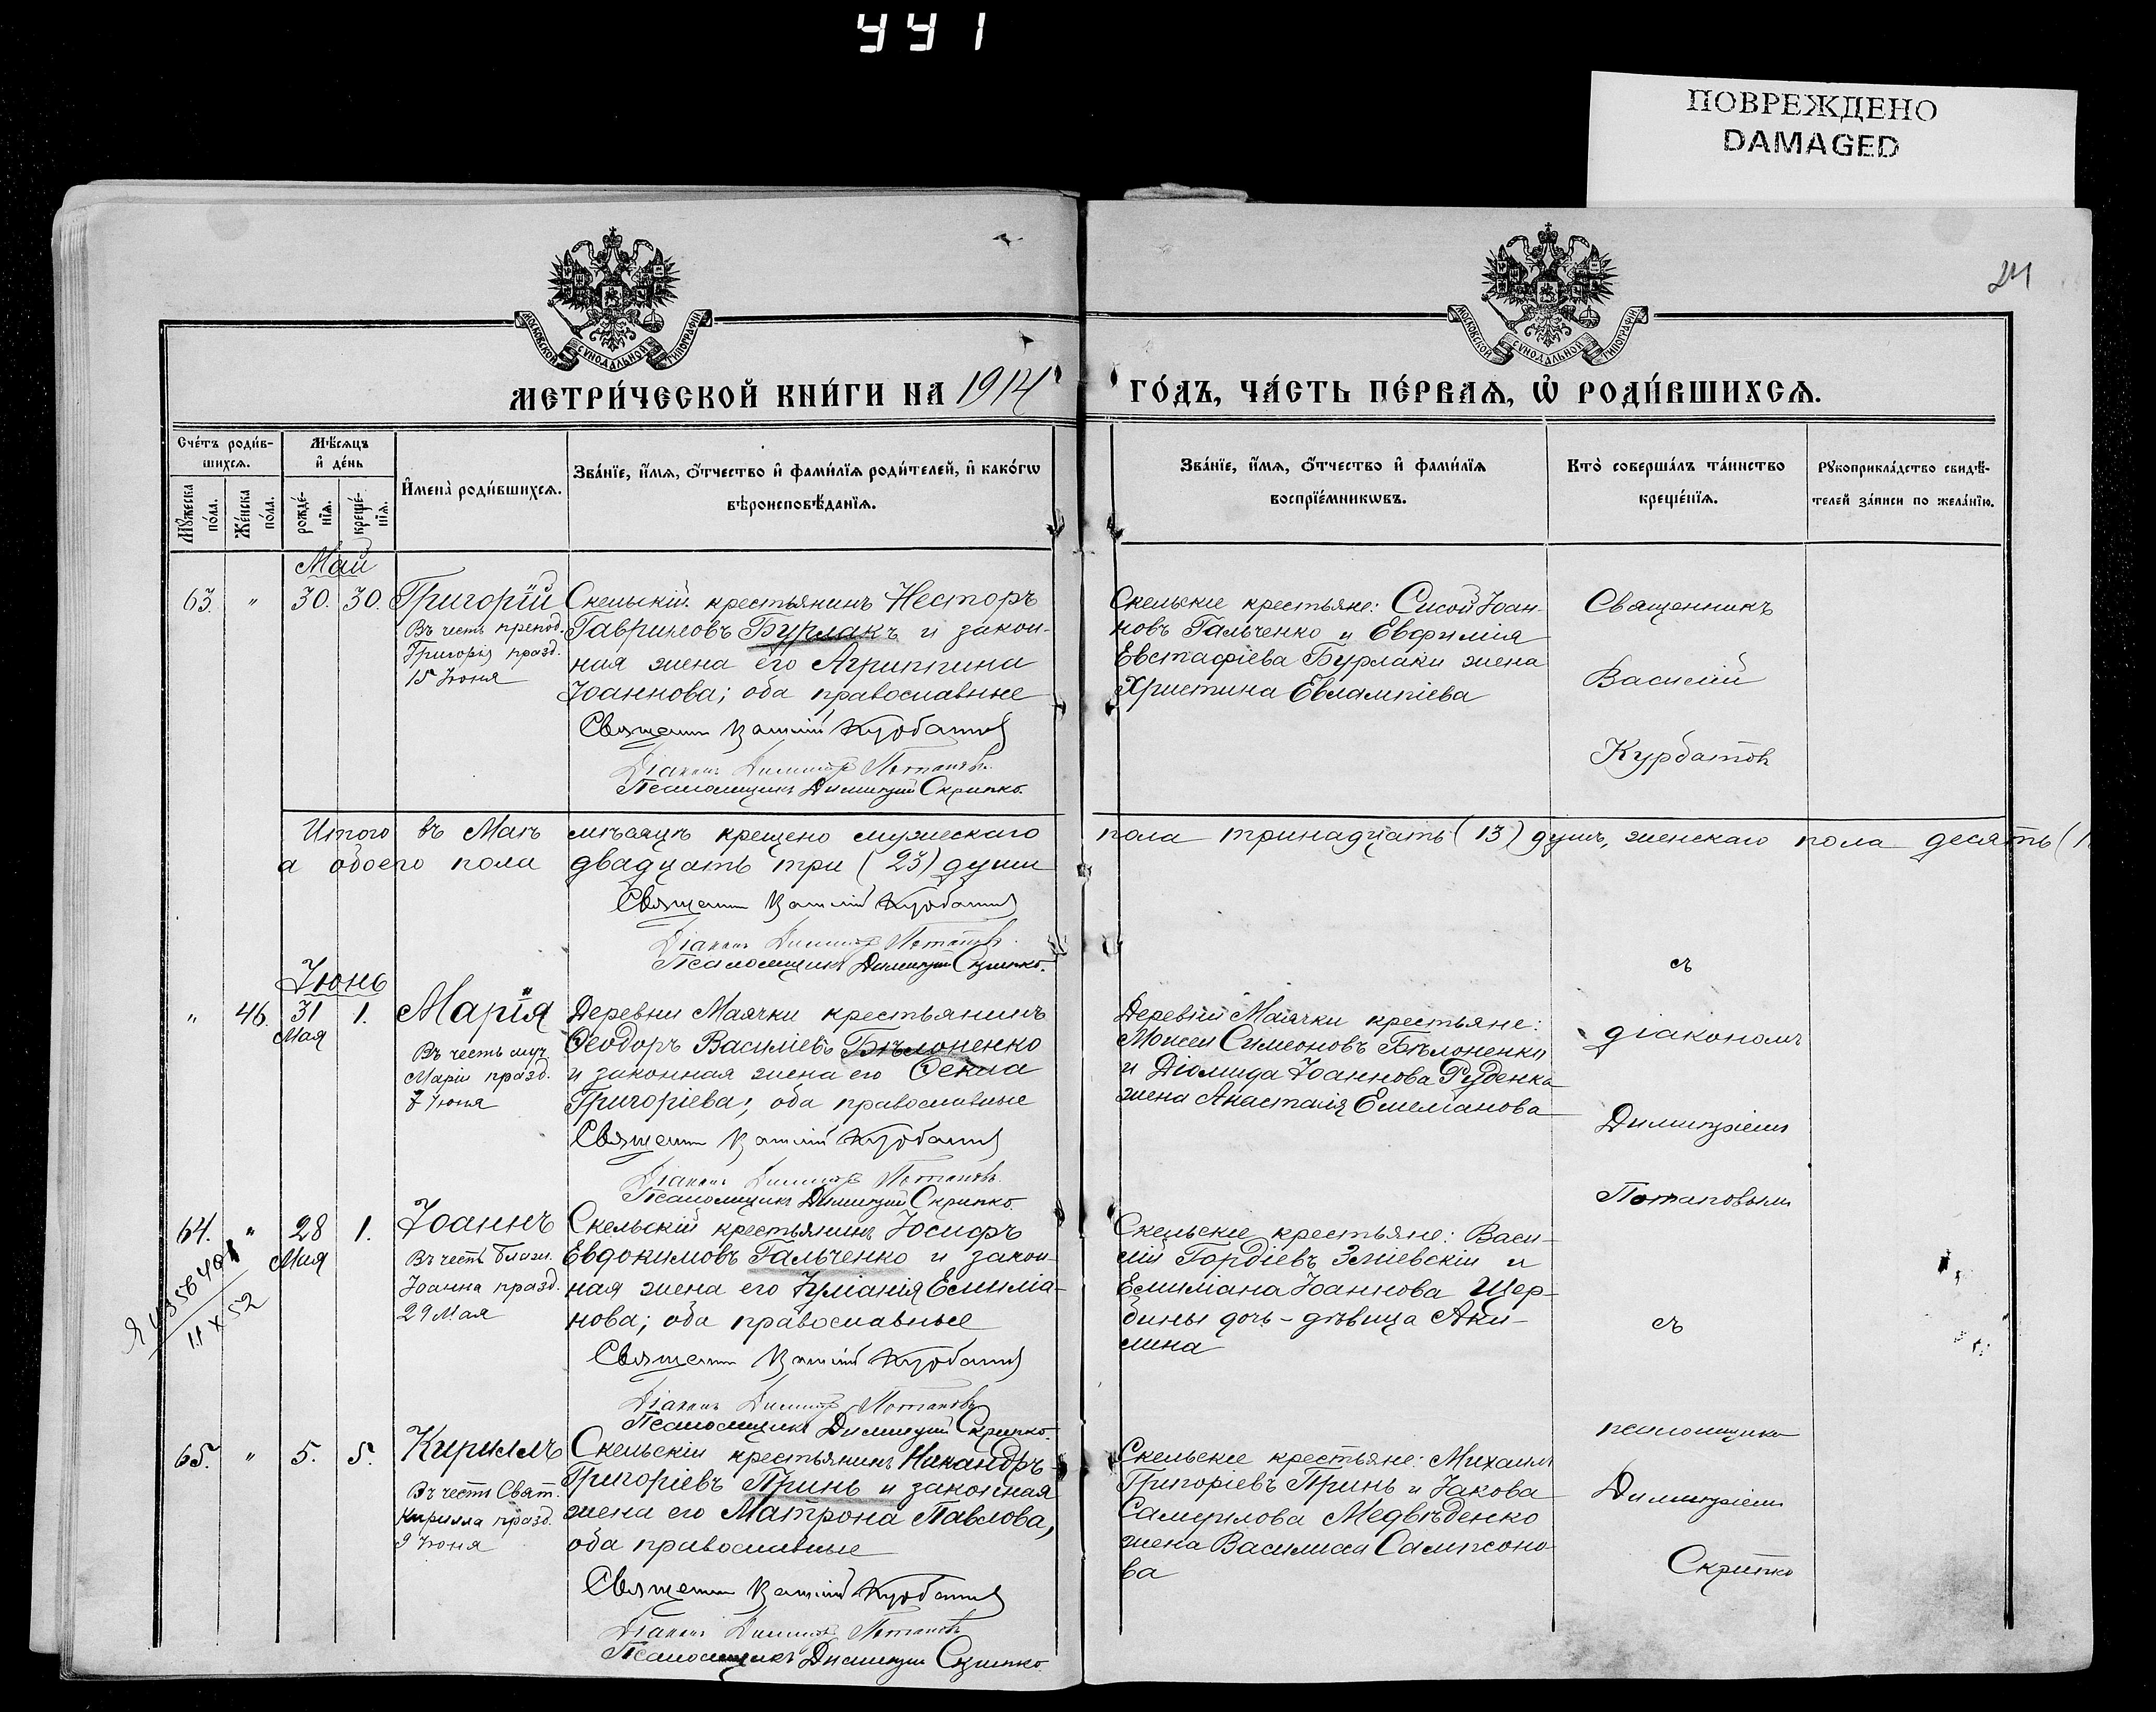 441
ПОВРЕЖДЕНО
DAMAGED
24
МОСКОВСКОЙ СУНОДАЛЬНОЙ ТИПОГРАФІИ
МОСКОВСКОЙ СУНОДАЛЬНОЙ ТИПОГРАФІИ
МЕТРИ́ЧЕСКОЙ КНИ́ГИ НА 1914 ГО́ДЪ, ЧА́СТЬ ПЕ́РВАѦ, Ѡ҆ РОДИ́ВШИХСѦ.
Сче́тъ роди́в-
шихсѧ.
Мѣ́сѧцъ
и҆ де́нь
Мꙋ́жеска по́ла.
Же́нска по́ла.
рожде́-нїѧ.
креще́-нїѧ.
И҆мена̀ роди́вшихсѧ.
Зва́нїе, и҆́мѧ, ѻ҆́тчество и҆ фами́лїѧ роди́телей, и҆ како́гѡ
вѣроисповѣ́данїѧ.
Зва́нїе, и҆́мѧ, ѻ҆́тчество и҆ фами́лїѧ
воспрїе́мникѡвъ.
Кто̀ соверша́лъ та́инство
креще́нїѧ.
Рꙋкоприкла́дство свидѣ́-
телей за́писи по жела́нїю.
Май
63. " 30. 30. Григорій
Въ честь препод.
Григорія празд.
15 Іюня
Скельскій крестьянинъ Несторъ
Гавриловъ Бурлакъ и закон-
ная жена его Агриппина
Іоаннова; оба православные
Священн Василій Курбатовъ
Діаконъ Димитрій Потаповъ
Псаломщикъ Димитрій Скрипко.
Скельскіе крестьяне: Сисой Іоан-
новъ Гальченко и Евфимія
Евстафіева Бурлаки жена
Христина Евлампіева
Священникъ
Василій
Курбатовъ
Итого въ Маѣ мѣсяцѣ крещено мужескаго пола тринадцать (13) душъ, женскаго пола десять (1
а обоего пола двадцать три (23) души
Священн Василій Курбатовъ
Діаконъ Димитрій Потаповъ.
Псаломщикъ Димитрій Скрипко.
Іюнь
" 46. 31 1. Марія
Мая
Въ честь муч.
Маріи празд.
7 Іюня
Деревни Маячки крестьянинъ
Ѳеодоръ Василіевъ Бѣлоненко
и законная жена его Ѳекла
Григоріева; оба православные
Священн Василій Курбатовъ
Діаконъ Димитрій Потаповъ.
Псаломщикъ Димитрій Скрипко.
Деревни Маячки крестьяне:
Моисей Симеоновъ Бѣлоненко
и Діомида Іоаннова Руденка
жена Анастасія Емеліанова
съ
діакономъ
Димитріемъ
Потаповымъ
64. " 28 1. Іоаннъ
Мая
Въ честь блаж.
Іоанна празд.
29 Мая
11 X 52
Скельскій крестьянинъ Іосифъ
Евдокимовъ Гальченко и закон-
ная жена его Іуліанія Емилиа-
нова; оба православные
Священн Василій Курбатовъ
Діаконъ Димитрій Потаповъ
Псаломщикъ Димитрій Скрипко.
Скельскіе крестьяне: Васи-
лій Гордіевъ Зміевскій и
Емиліана Іоаннова Щер-
бины дочь - дѣвица Аки-
лина
съ
псаломщикомъ
Димитріемъ
Скрипко
65. " 5. 5. Кириллъ
Въ честь Свят.
Кирилла празд.
9 Іюня
Скельскій крестьянинъ Никандръ
Григоріевъ Принь и законная
жена его Матрона Павлова,
оба православные
Священн Василій Курбатовъ
Діаконъ Димитрій Потаповъ
Псаломщикъ Димитрій Скрипко.
Скельскіе крестьяне: Михаилъ
Григоріевъ Принь и Іакова
Самуилова Медвѣденко
жена Василисса Сампсоно-
ва